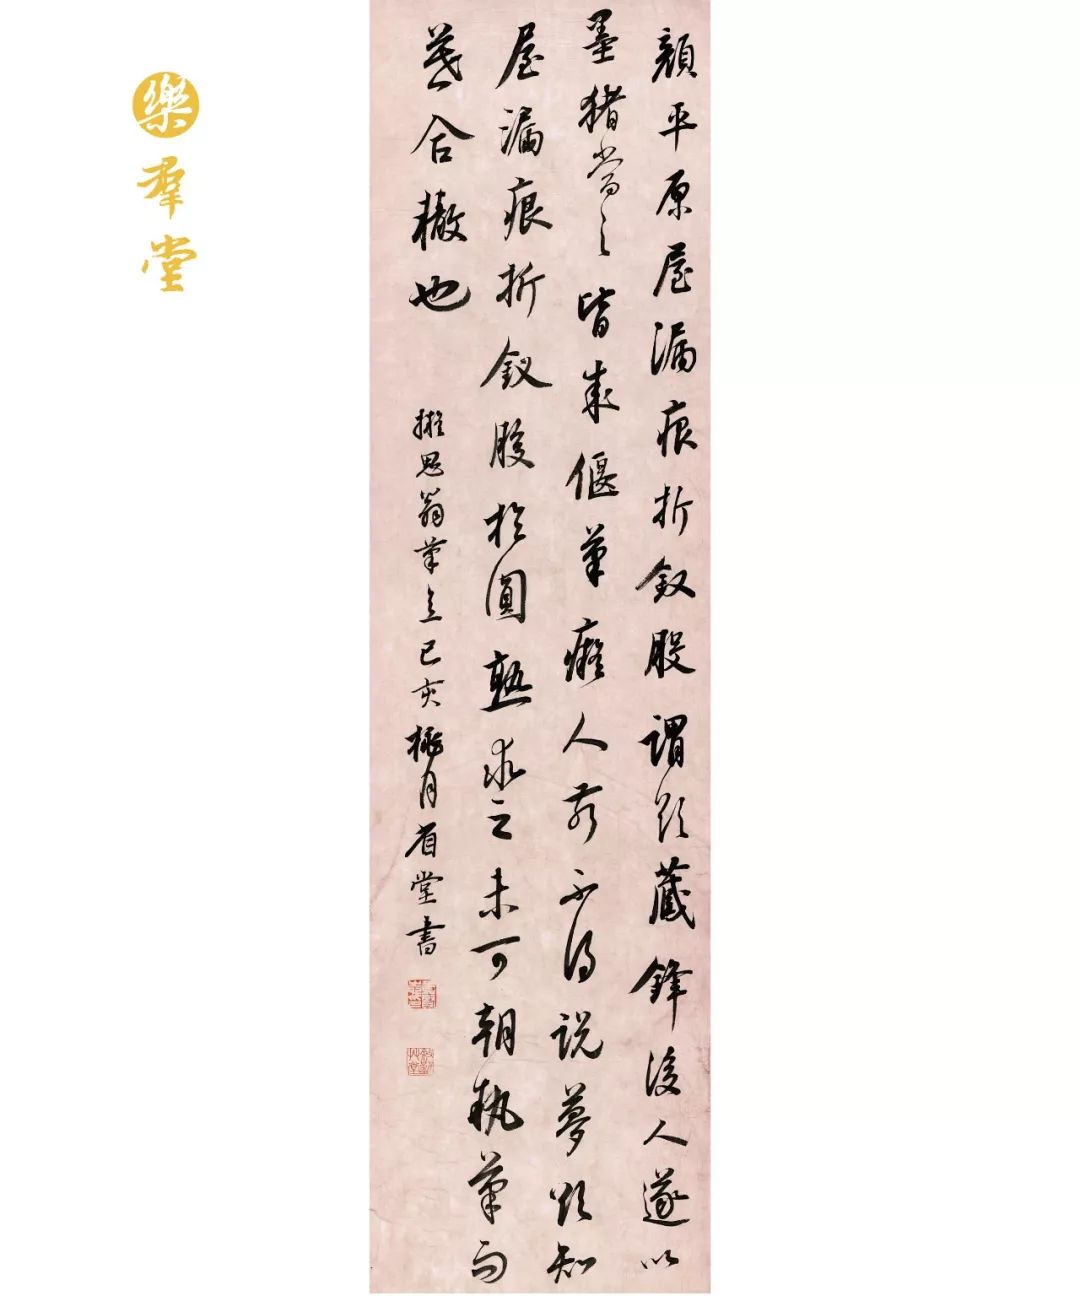 顏平原屋漏痕折釵股謂欲藏鋒後人遂以
墨猪當之皆成偃筆癡人前不得說夢欲知
屋漏痕折釵股於圓熟求之未可朝執筆而
暮合轍也
擬思翁筆意己亥梅月省堂書
樂群堂